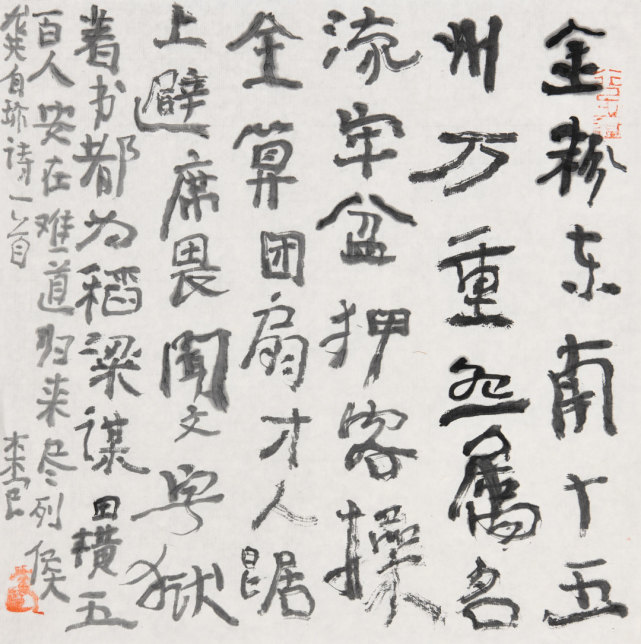 金粉东南十五
州万重怨属名
流牢盆狎客操
全算团扇才人踞
上避席畏聞文字狱
着书都为稻粱谋田横五
百人安在难道归来尽列侯
龚自珍诗一首